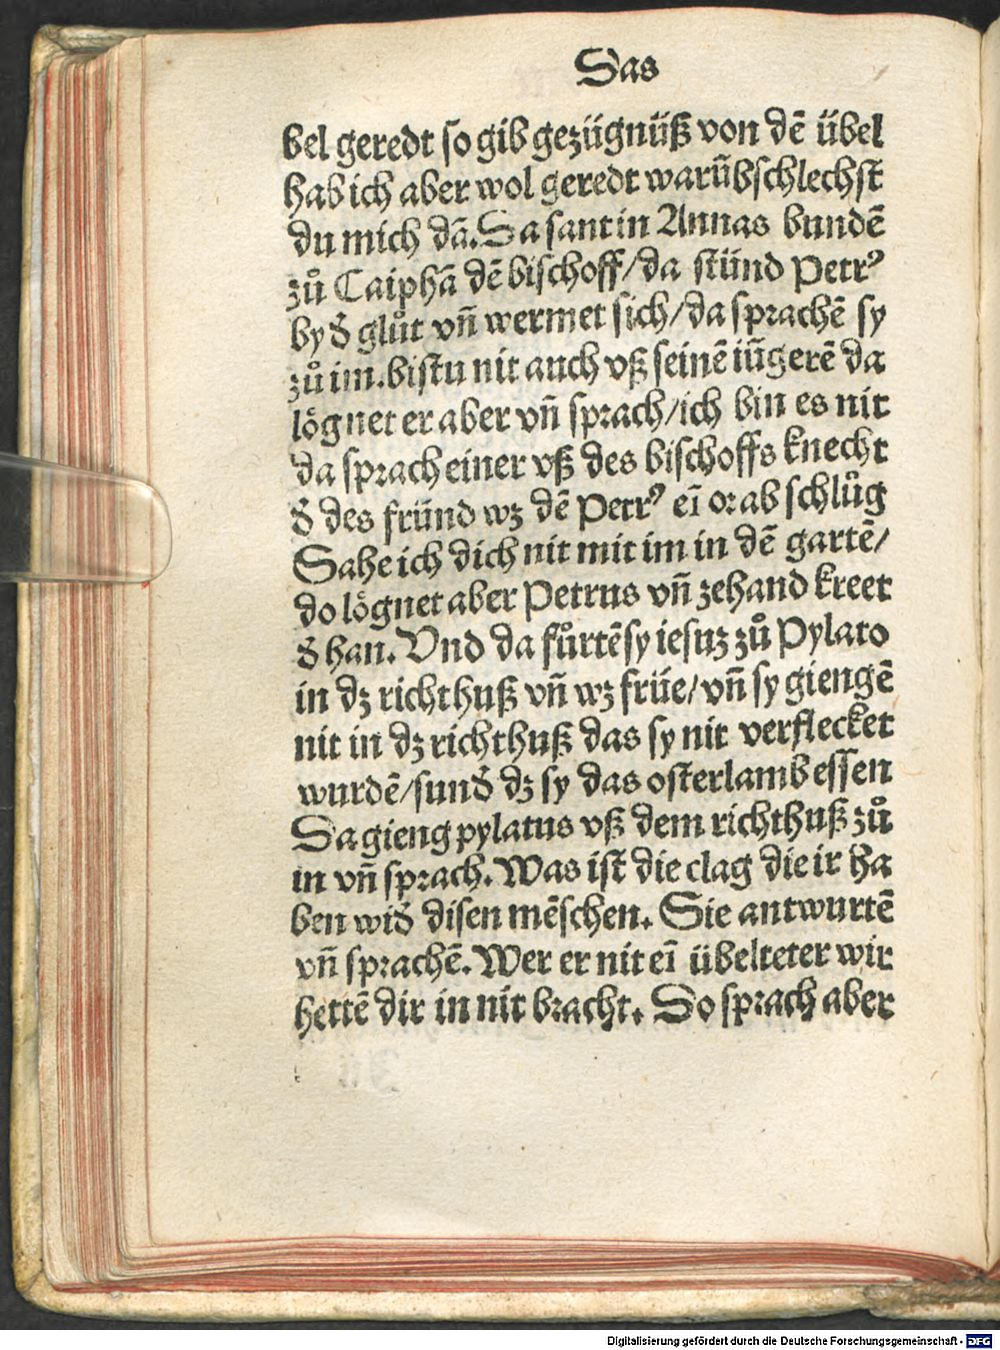 Das
bel geredt so gib gezügnüß von dē übel
hab ich aber wol geredt warūb schlechst
du mich dā. Da sant in Annas bundē
zů Caiphā dē bischoff/da stünd Petrꝰ
by đ glůt vñ wermet sich/da sprachē sy
zů im. bistu nit auch vß seinē iūgerē da
lögnet er aber vñ sprach/ich bin es nit
da sprach einer vß des bischoffs knecht
đ des fründ wz dē Petrꝰ eī or ab schlůg
Sahe ich dich nit mit im in dē gartē/
do lögnet aber Petrus vñ zehand kreet
đ han̄. Vnd da fůrtē sy iesuz zů Pylato
in dz richthuß vñ wz früe/vñ sy giengē
nit in dz richthuß das sy nit verflecket
wurdē/sunđ dz sy das osterlamb essen
Da gieng pylatus vß dem richthuß zů
in vñ sprach. Was ist die clag die ir ha
ben wiđ disen mēschen. Sie antwurtē
vñ sprachē. Wer er nit eī übelteter wir
hettē dir in nit bracht. Do sprach aber
Digitalisierung gefördert durch die Deutsche Forschungsgemeinschaft - DFG